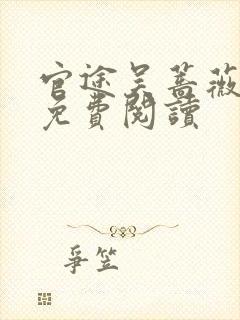 官途吴蔷薇
免費閱讀
爭笠